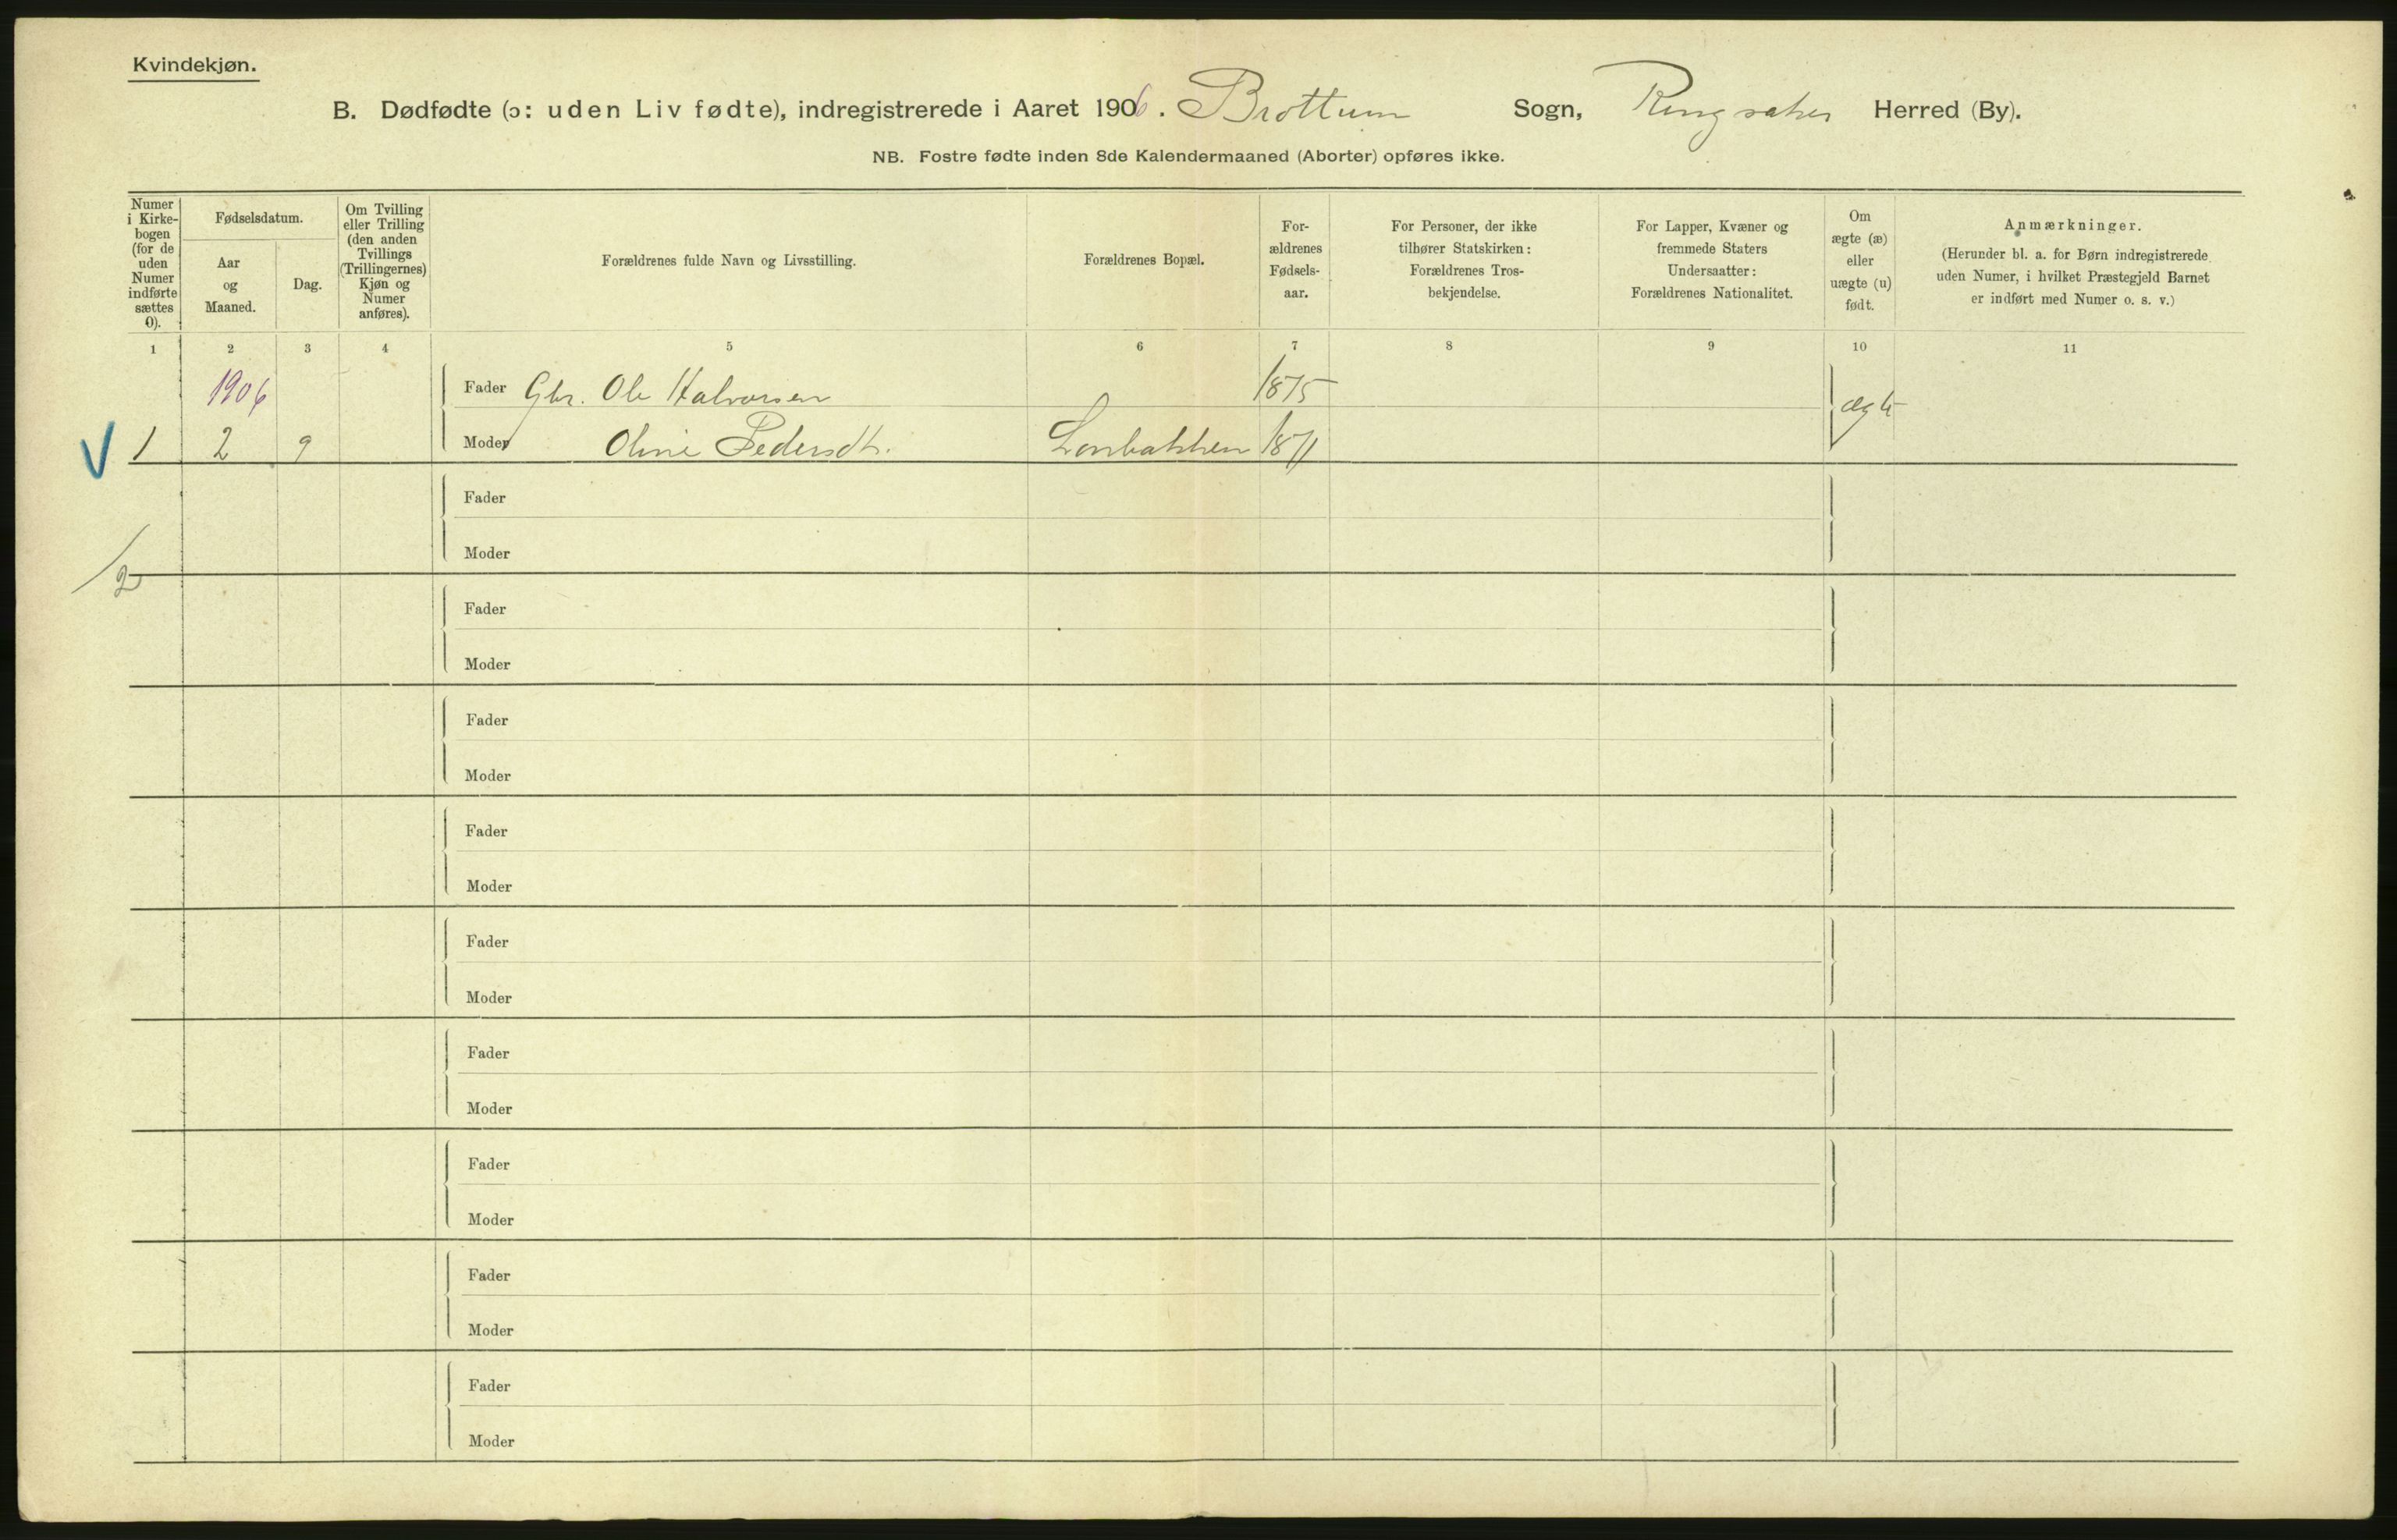 Kvindekjøn.
B. Dødfødte (ɔ: uden Liv fødte), indregistrerede i Aaret 1906. Brottum Sogn, Ringsaker Herred (By).
NB. Fostre fødte inden 8de Kalendermaaned (Aborter) opføres ikke.
Numer i Kirkebogen (for de uden Numer indførte sættes 0).
Fødselsdatum.
Aar og Maaned.
Dag.
Om Tvilling eller Trilling (den anden Tvillings (Trillingernes) Kjøn og Numer anføres).
Forældrenes fulde Navn og Livsstilling.
Forældrenes Bopæl.
For-
ældrenes
Fødsels-
aar.
For Personer, der ikke
tilhører Statskirken:
Forældrenes Tros-
bekjendelse.
For Lapper, Kvæner og
fremmede Staters
Undersaatter:
Forældrenes Nationalitet.
Om
ægte (æ)
eller
uægte (u)
født.
Anmærkninger.
(Herunder bl. a. for Børn indregistrerede
uden Numer, i hvilket Præstegjeld Barnet
er indført med Numer o. s. v.)
1 2 3 4 5 6 7 8 9 10 11
1906 Fader Gbr. Ole Halvorsen 1875 ægte
V 1 2 9 Moder Oline Pedersdt. 1871
Fader
Moder
/2
Fader
Moder
Fader
Moder
Fader
Moder
Fader
Moder
Fader
Moder
Fader
Moder
Fader
Moder
Fader
Moder